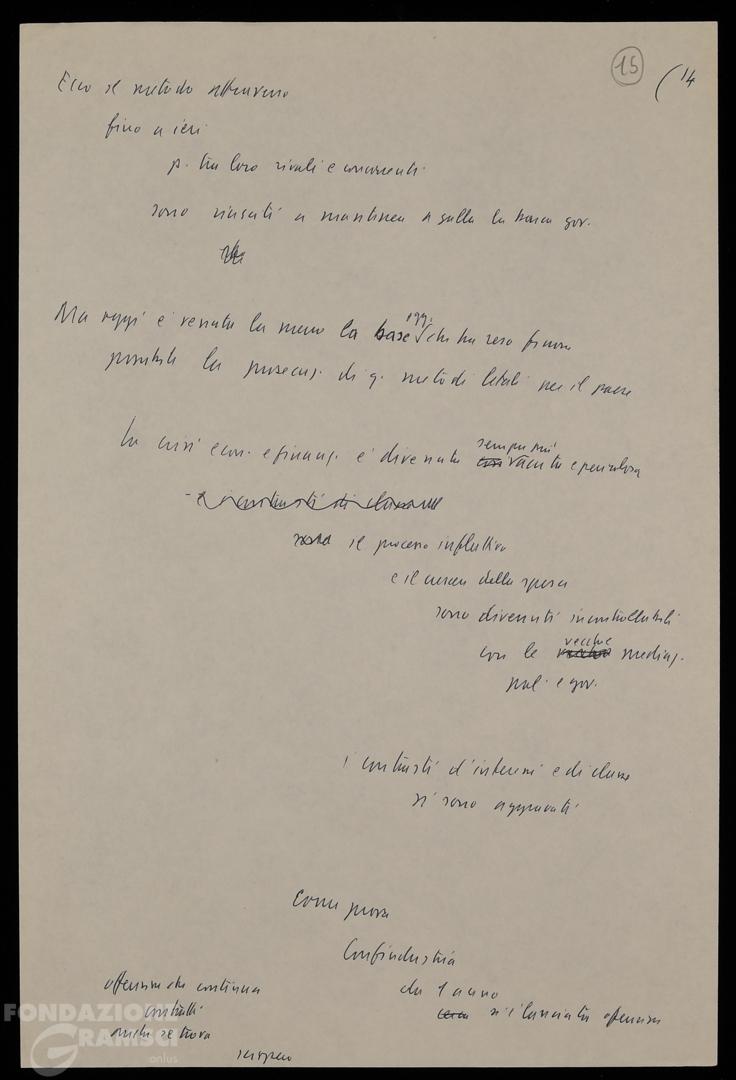 15
(14
Ecco il metodo attraverso
fino a ieri
p. tra loro rivali e concorrenti
sono riusciti a mantenere a galla la barca gov.
Ma oggi è venuta la meno la base oggi che ha reso finora
possibile la prosecuz. di q. metodi letali per il paese
La crisi econ. e finanz. è divenuta sempre più acuta e pericolosa
- e i contrasti di classe
sono il processo inflattivo
e il crescere della spesa
sono divenuti incontrollabili
con le vecchie mediaz.
pol. e gov.
i contrasti d'interessi e di classe
si sono aggravati
Come prova
Confindustria
da 1 anno
si è lanciata offensiva
offensiva che continua
contratti
anche se trova
FONDAZIONE
GRAMSCI
onlus